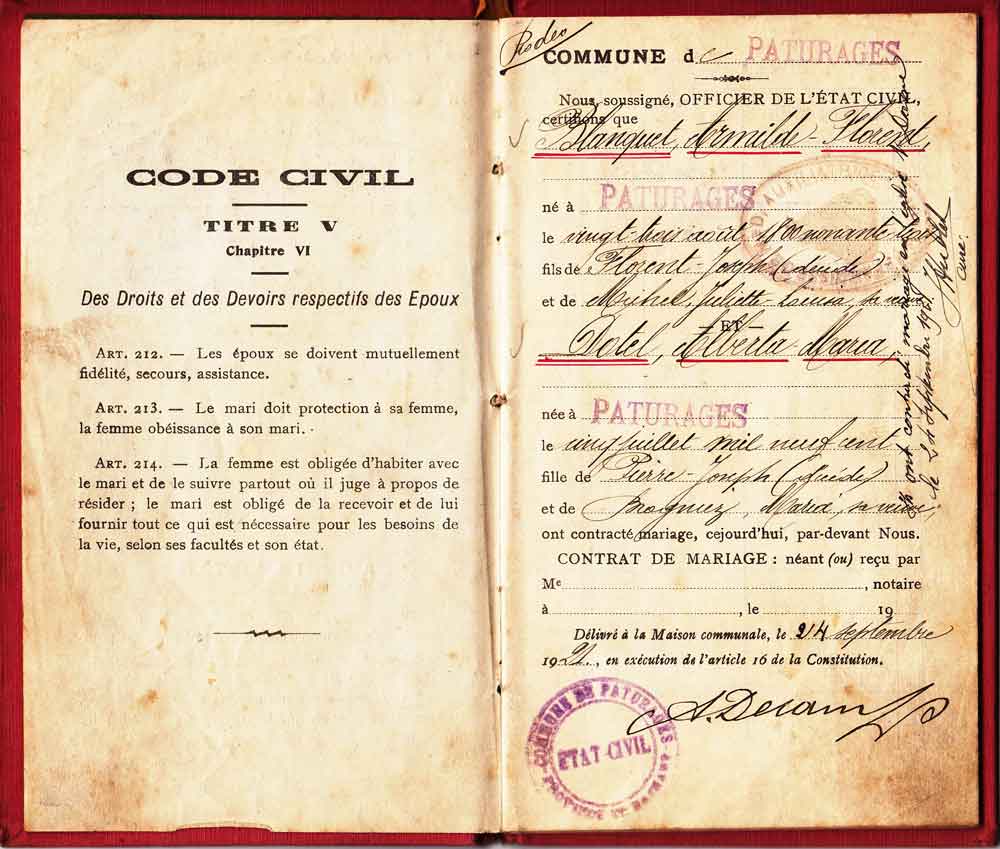 CODE CIVIL
TITRE V
Chapitre VI
Des Droits et des Devoirs respectifs des Epoux
ART. 212. — Les époux se doivent mutuellement
fidélité, secours, assistance.
ART. 213. — Le mari doit protection à sa femme,
la femme obéissance à son mari.
ART. 214. — La femme est obligée d'habiter avec
le mari et de le suivre partout où il juge à propos de
résider ; le mari est obligé de la recevoir et de lui
fournir tout ce qui est nécessaire pour les besoins de
la vie, selon ses facultés et son état.
COMMUNE de PATURAGES
Nous, soussigné, OFFICIER DE L'ÉTAT CIVIL,
certifions que
Blanquet, Armilde-Florent,
né à PATURAGES
le vingt-trois août
fils de Florent-Joseph (décédé)
et de Michel, Juliette-Louisa, sa veuve
ET
Dotel, Alberta-Maria,
née à PATURAGES
le cinq juillet mil neuf cent
fille de Pierre-Joseph (décédé)
et de Brogniez, Maria, sa veuve,
ont contracté mariage, cejourd'hui, par-devant Nous.
CONTRAT DE MARIAGE : néant (ou) reçu par
Me , notaire
à , le 19
Délivré à la Maison communale, le 24 septembre
1921, en exécution de l'article 16 de la Constitution.
COMMUNE DE PATURAGES
ETAT-CIVIL
PROVINCE DE HAINAUT
Ils ont contracté mariage en
le 24 septembre 1921
curé.